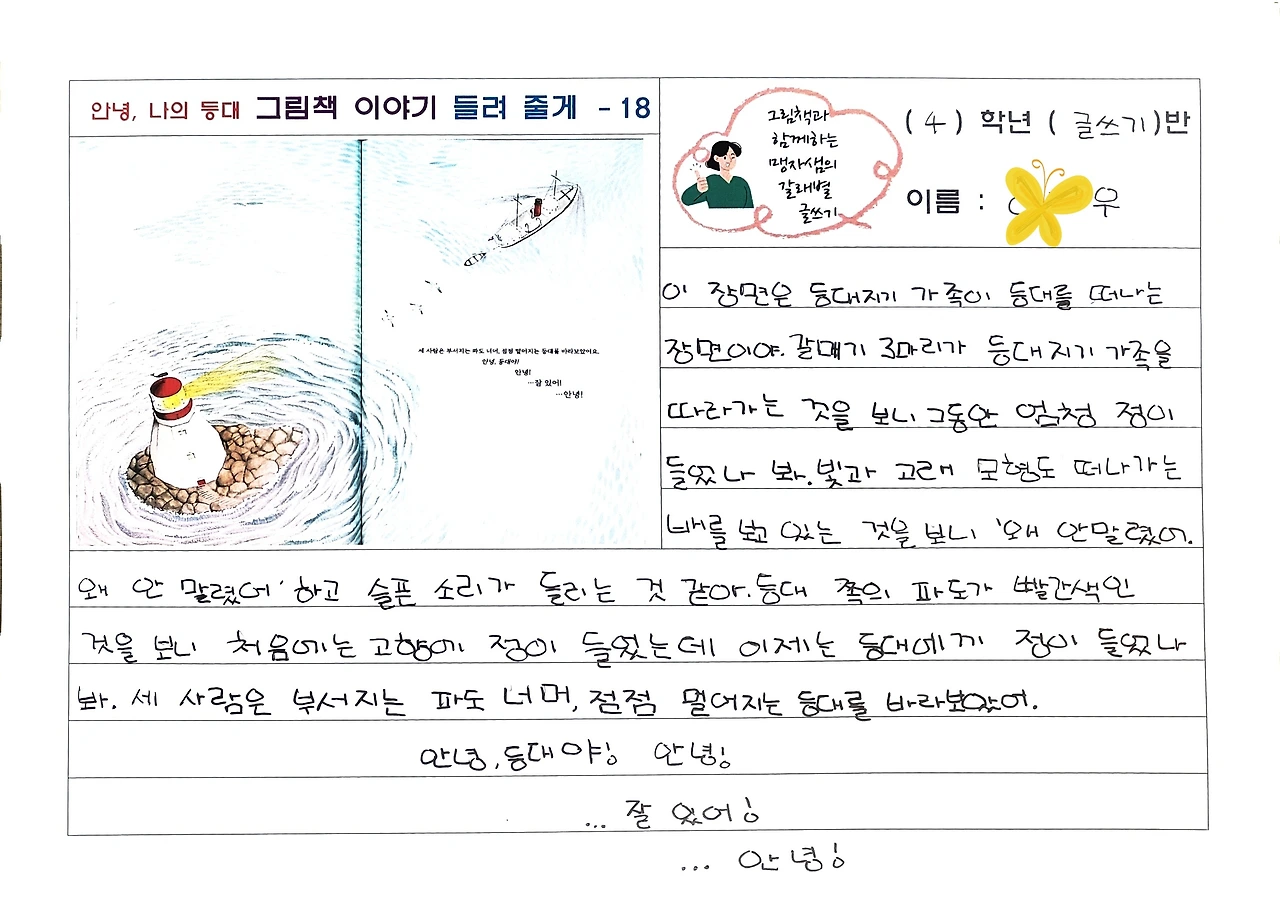 안녕, 나의 등대 그림책 이야기 들려 줄게 - 18
세 사람은 부서지는 파도 너머, 점점 멀어지는 등대를 바라보았어요.
안녕, 등대야!
안녕!
…잘 있어!
…안녕!
그림책과
함께하는
맹자샘의
갈래별
글쓰기
( 4 ) 학년 ( 글쓰기 )반
이름 : 우
이 장면은 등대지기 가족이 등대를 떠나는
장면이야. 갈매기 3마리가 등대지기 가족을
따라가는 것을 보니 그동안 엄청 정이
들었나 봐. 빛과 고래 모형도 떠나가는
배를 보고 있는 것을 보니 '왜 안말렸어.
왜 안 말렸어' 하고 슬픈 소리가 들리는 것 같아. 등대 쪽의 파도가 빨간색인
것을 보니 처음에는 고향에 정이 들었는데 이제는 등대에게 정이 들었나
봐. 세 사람은 부서지는 파도 너머, 점점 멀어지는 등대를 바라보았어.
안녕, 등대야! 안녕!
... 잘 있어!
... 안녕!